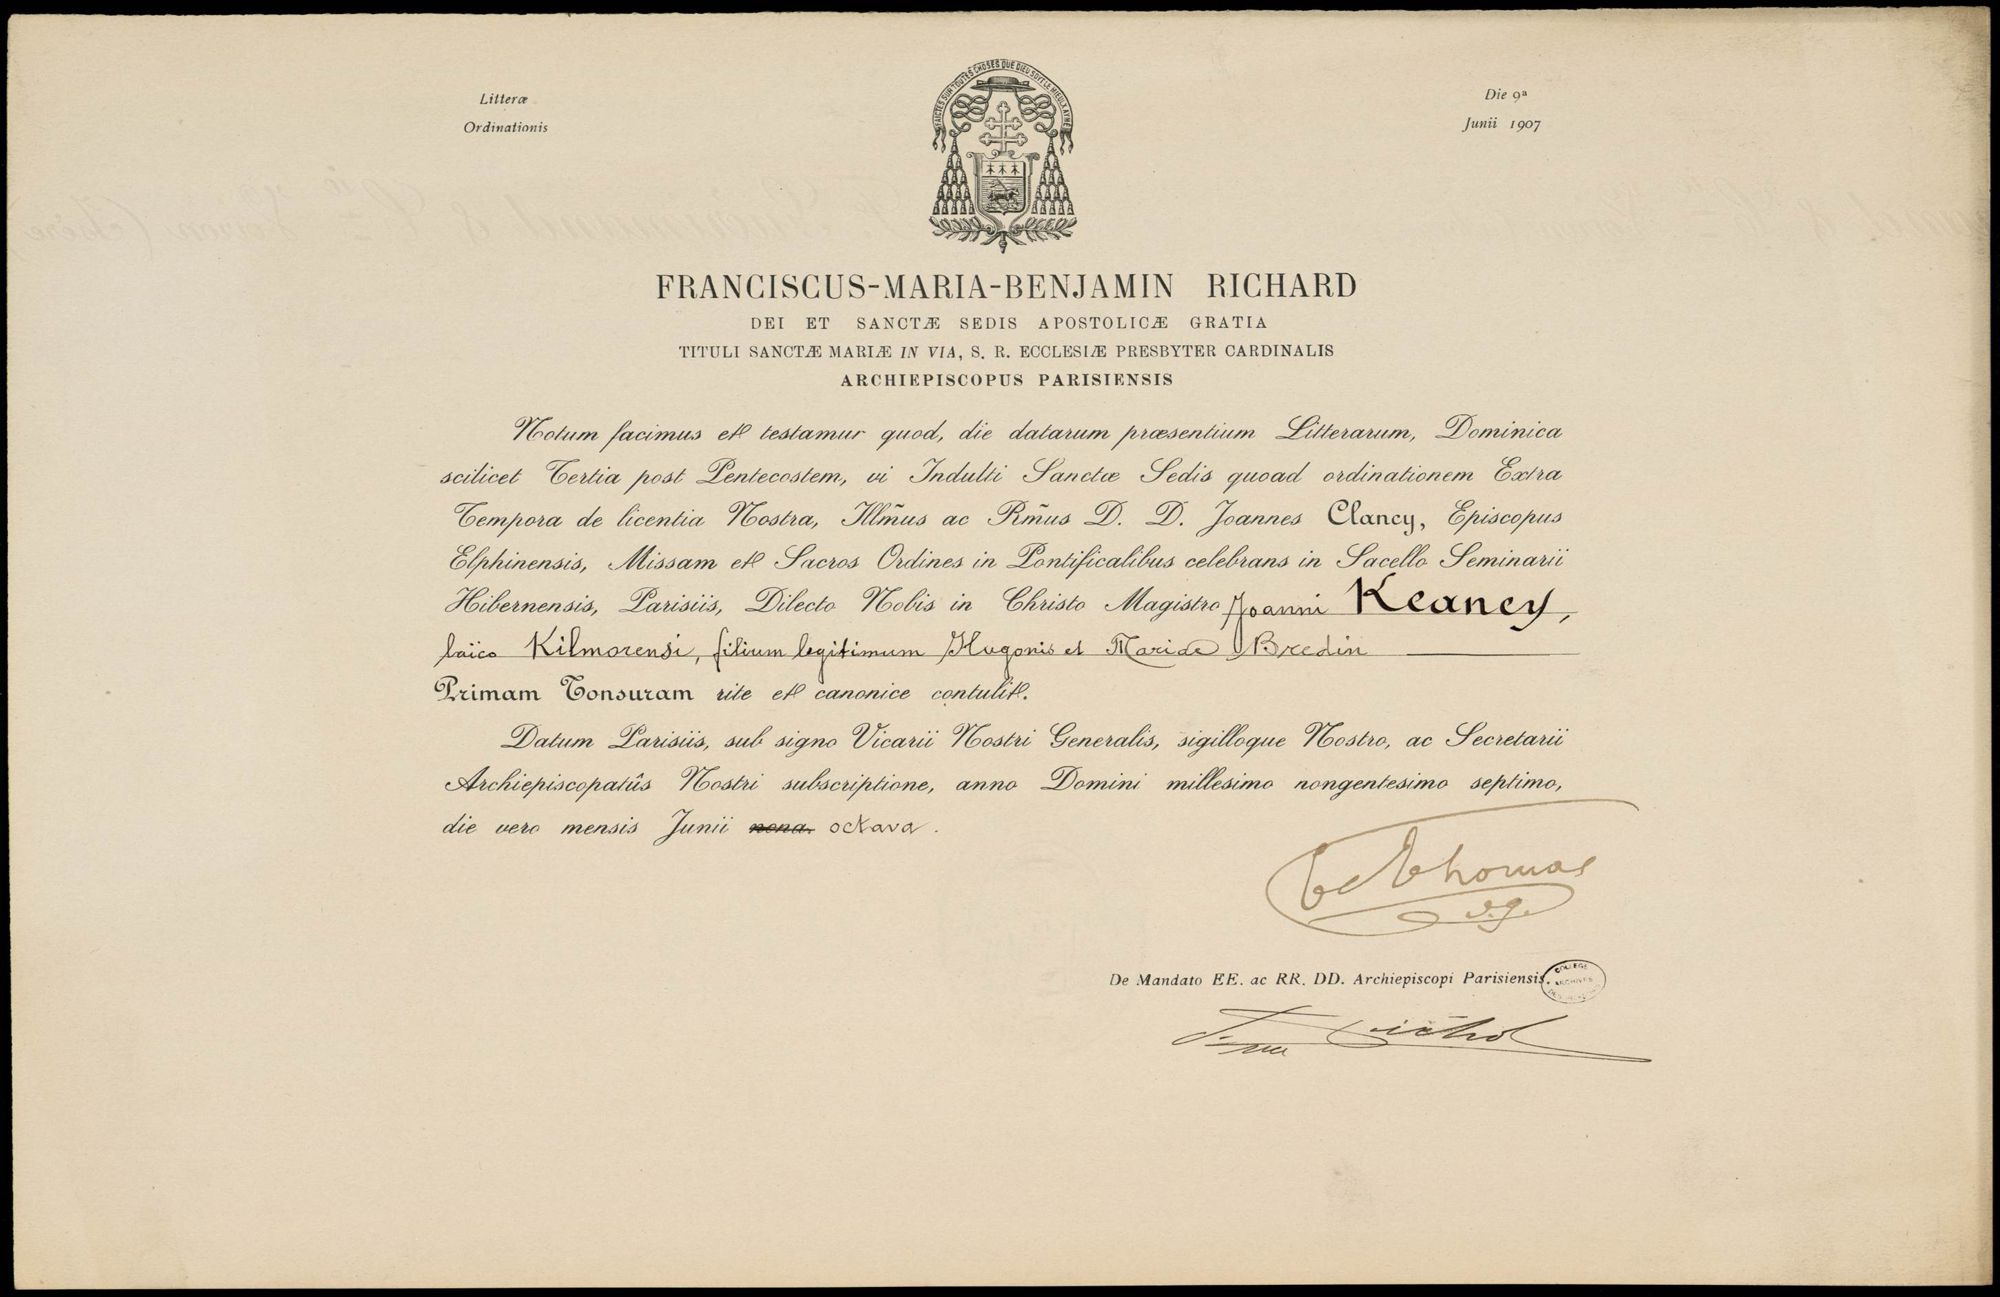 Litteræ
Ordinationis
Die 9ª
Junii 1907
FRANCISCUS-MARIA-BENJAMIN RICHARD
DEI ET SANCTÆ SEDIS APOSTOLICÆ GRATIA
TITULI SANCTÆ MARIÆ IN VIA, S. R. ECCLESIÆ PRESBYTER CARDINALIS
ARCHIEPISCOPUS PARISIENSIS
Notum facimus et testamur quod, die datarum præsentium Litterarum, Dominica
scilicet Tertia post Pentecostem, vi Indulti Sanctæ Sedis quoad ordinationem Extra
Tempora de licentia Nostra, Illm̃us ac Rm̃us D. D. Joannes Clancy, Episcopus
Elphinensis, Missam et Sacros Ordines in Pontificalibus celebrans in Sacello Seminarii
Hibernensis, Parisiis, Dilecto Nobis in Christo Magistro Joanni Keaney,
laïco Kilmorensi, filium legitimum Hugonis et Mariæ Bredin
Primam Tonsuram rite et canonice contulit.
Datum Parisiis, sub signo Vicarii Nostri Generalis, sigilloque Nostro, ac Secretarii
Archiepiscopatûs Nostri subscriptione, anno Domini millesimo nongentesimo septimo,
die vero mensis Junii nona. octava.
Thomas
v.g.
De Mandato EE. ac RR. DD. Archiepiscopi Parisiensis.
COLLEGE
ARCHIVES